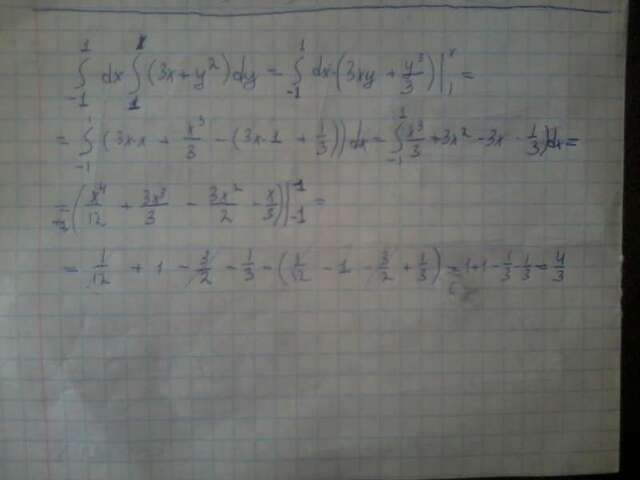 ∫₋₁¹ dx ∫₁ˣ (3x + y²) dy = ∫₋₁¹ dx · (3xy + y³/3) |₁ˣ =
= ∫₋₁¹ (3x·x + x³/3 − (3x·1 + 1/3)) dx = ∫₋₁¹ (x³/3 + 3x² − 3x − 1/3) dx =
= (x⁴/12 + 3x³/3 − 3x²/2 − x/3) |₋₁¹ =
= 1/12 + 1 − 3/2 − 1/3 − (1/12 − 1 − 3/2 + 1/3) = 1 + 1 − 1/3 − 1/3 = 4/3